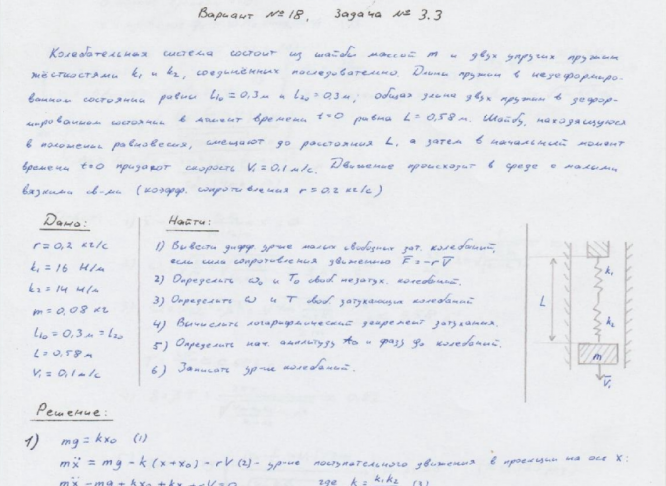 Вариант №18, Задача № 3.3
Колебательная система состоит из шайбы массой m и двух упругих пружин
жёсткостями k₁ и k₂, соединённых последовательно. Длина пружин в недеформиро-
ванном состоянии равны L₁₀ = 0,3 м и L₂₀ = 0,3 м; общая длина двух пружин в дефор-
мированном состоянии в момент времени t=0 равна L = 0,58 м. Шайбу, находящуюся
в положении равновесия, смещают до расстояния L, а затем в начальный момент
времени t=0 придают скорость V₁ = 0,1 м/с. Движение происходит в среде с малыми
вязкими св-ми (коэфф. сопротивления r = 0.2 кг/с)
Дано:
r = 0,2 кг/с
k₁ = 16 Н/м
k₂ = 14 Н/м
m = 0,08 кг
L₁₀ = 0,3 м = L₂₀
L = 0,58 м
V₁ = 0,1 м/с
Найти:
1) Вывести дифф. ур-ие малых свободных зат. колебаний,
если сила сопротивления движению F̅ = -rV̅
2) Определить ω₀ и T₀ своб. незатух. колебаний.
3) Определить ω и T своб. затухающих колебаний
4) Вычислить логарифмический декремент затухания.
5) Определить нач. амплитуду A₀ и фазу колебаний.
6) Записать ур-ие колебаний.
L
k₁
k₂
m
V̅₁
Решение:
1) mg = kx₀ (1)
mẍ = mg - k(x + x₀) - rV (2) - ур-ие поступательного движения в проекции на ось X:
mẍ - mg + kx₀ + kx + rV = 0 где k = k₁k₂ (3)